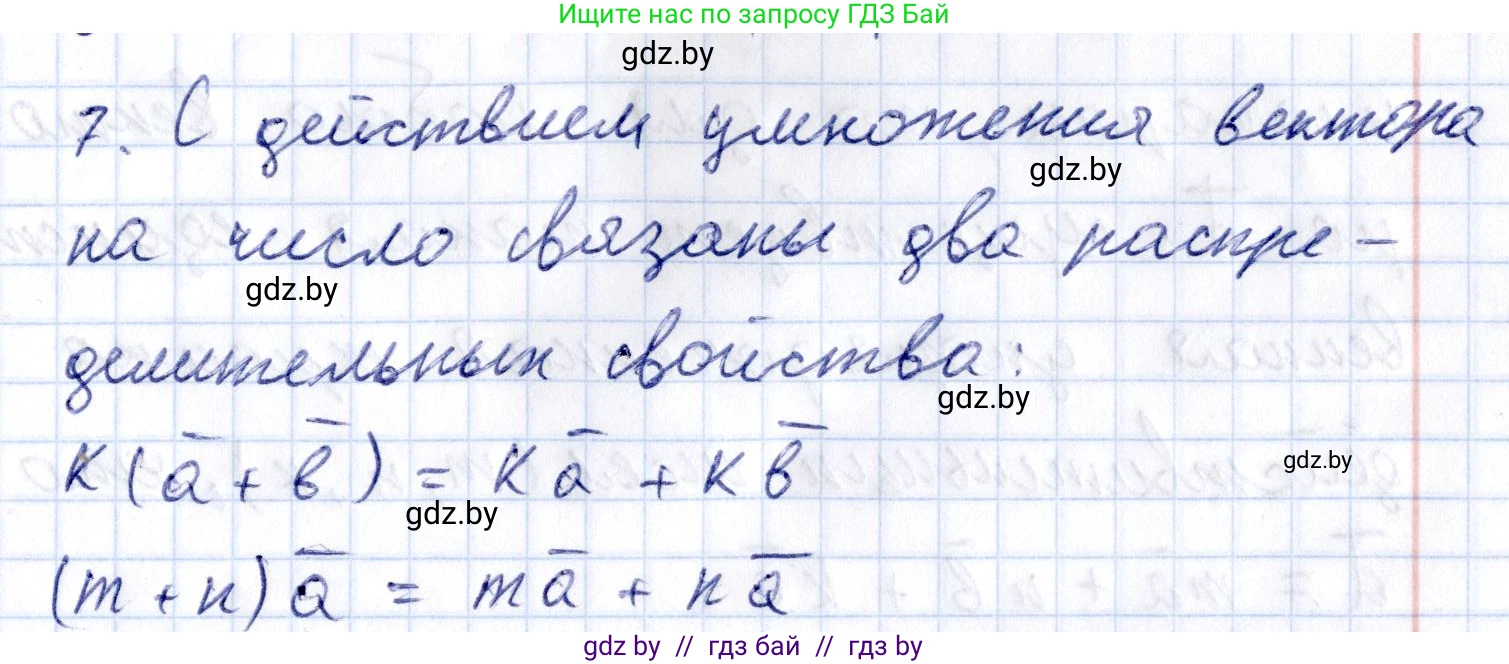 Ищите нас по запросу ГДЗ Бай
gdz.by
7. С действием умножения вектора
gdz.by
на число связаны два распре-
gdz.by
делительных свойства:
gdz.by
k(a̅ + b̅) = k a̅ + k b̅
gdz.by
gdz.by
(m + n) a̅ = m a̅ + n a̅
gdz.by // гдз бай // гдз by